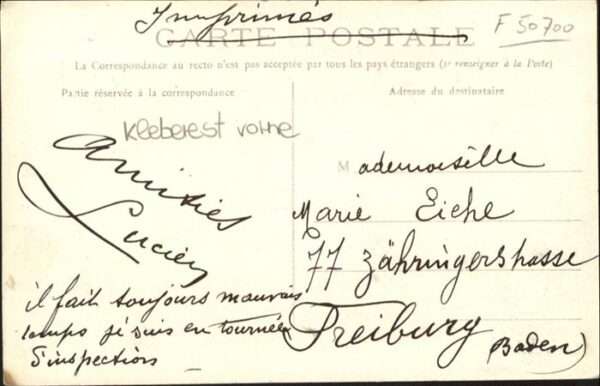 Imprimés
CARTE POSTALE
F 50700
La Correspondance au recto n'est pas acceptée par tous les pays étrangers (se renseigner à la Poste)
Partie réservée à la correspondance
Adresse du destinataire
Amitiés
Lucien
il fait toujours mauvais
temps je suis en tournée
d'inspection
Mademoiselle
Marie Eiche
77 Zähringerstrasse
Freiburg
Baden)